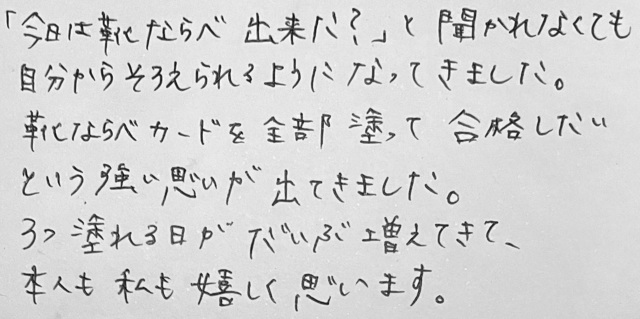 「今日は靴ならべ出来た？」と聞かれなくても
自分からそろえられるようになってきました。
靴ならべカードを全部塗って合格したい
という強い思いが出てきました。
3つ塗れる日がだいぶ増えてきて、
本人も私も嬉しく思います。